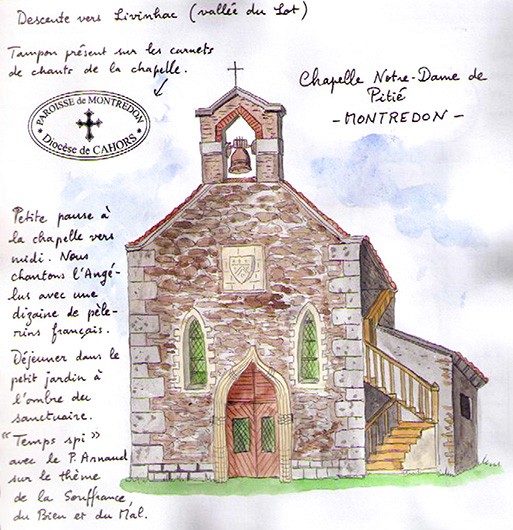 Descente vers Livinhac (vallée du Lot)
Tampon présent sur les carnets
de chants de la chapelle.
PAROISSE de MONTREDON
Diocèse de CAHORS
Chapelle Notre-Dame de
Pitié
- MONTREDON -
Petite pause à
la chapelle vers
midi. Nous
chantons l'Angé-
lus avec une
dizaine de pèle-
rins français.
Déjeuner dans le
petit jardin à
l'ombre du
sanctuaire.
"Temps spi"
avec le P. Arnaud
sur le thème
de la Souffrance,
du Bien et du Mal.